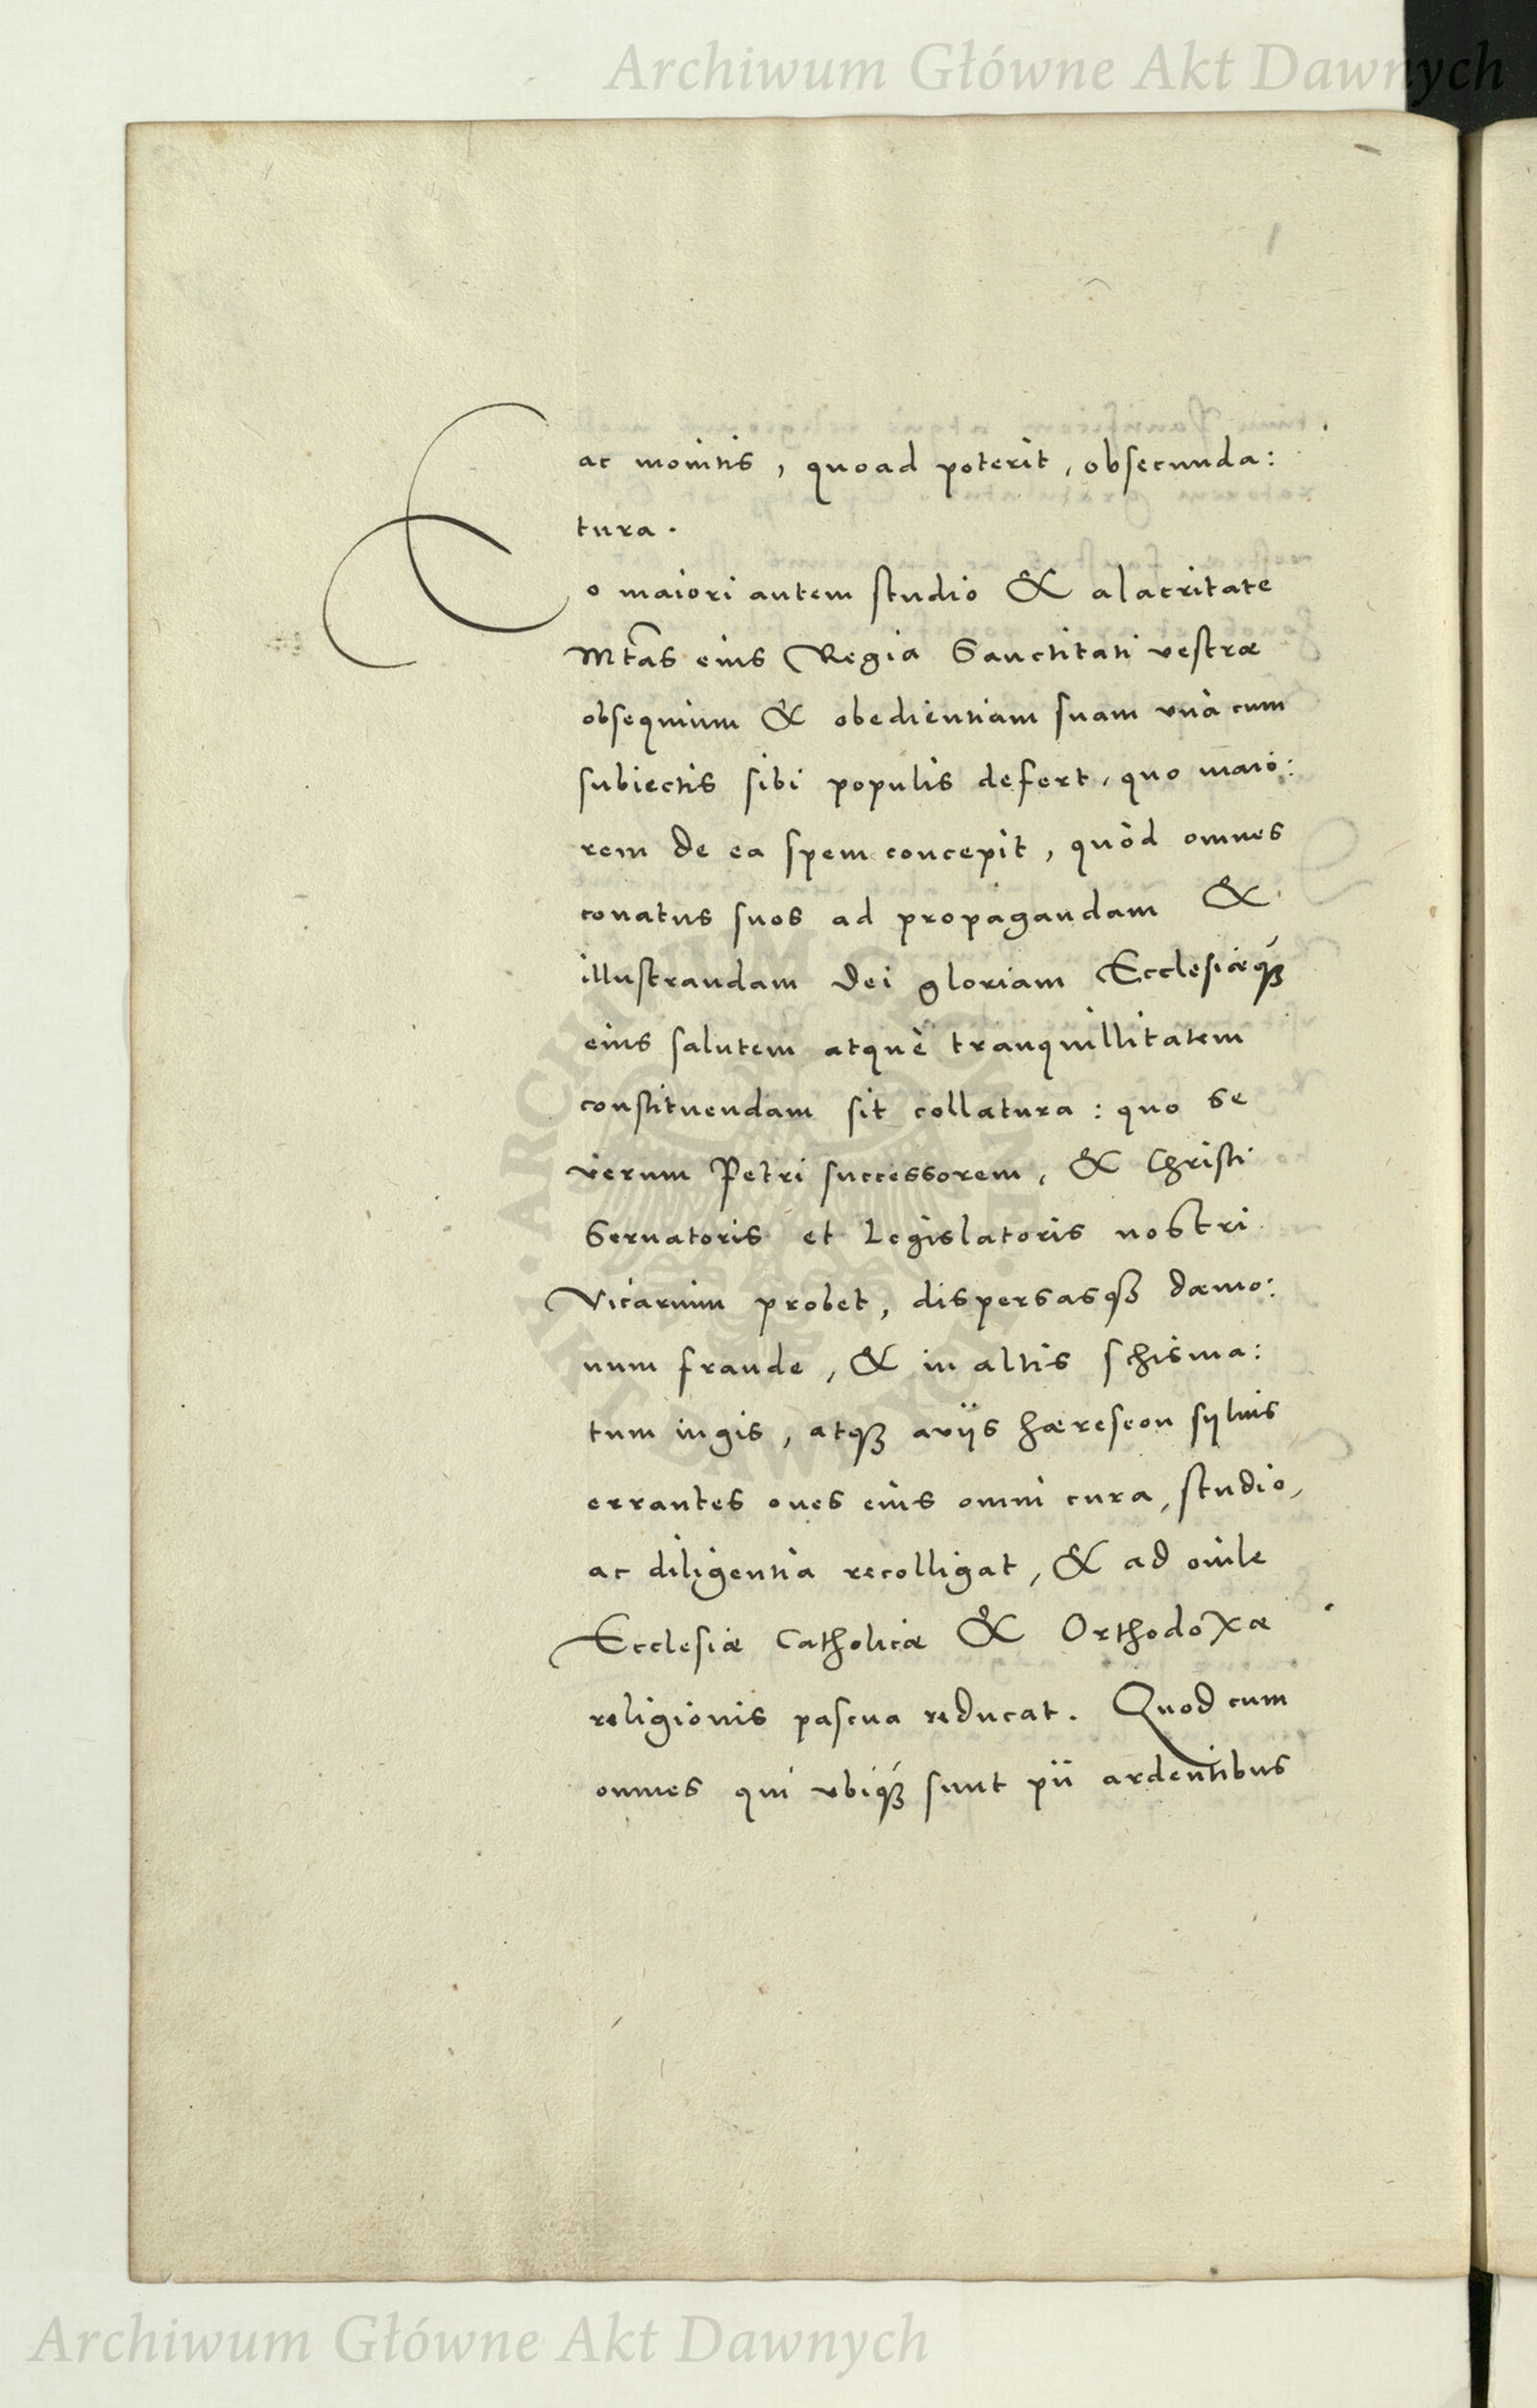 Archiwum Główne Akt Dawnych
ac monitis, quoad poterit, obsecunda:
tura.
Eo maiori autem studio & alacritate
Mtas eius Regia Sanctitati vestræ
obsequium & obedientiam suam vnà cum
subiectis sibi populis defert, quo maio:
rem de ea spem concepit, quòd omnes
conatus suos ad propagandam &
illustrandam Dei gloriam Ecclesiæq́ꝫ
eius salutem atquè tranquillitatem
constituendam sit collatura: quo se
verum Petri successorem, & Christi
Seruatoris et Legislatoris nostri
Vicarium probet, dispersasqꝫ dæmo:
num fraude, & in altis schisma:
tum iugis, atqꝫ auijs hæreseon syluis
errantes oues eius omni cura, studio,
ac diligentia recolligat, & ad ouile
Ecclesiæ Catholicæ & Orthodoxæ
religionis pascua reducat. Quod cum
omnes qui vbiq́ꝫ sunt pii ardentibus
ARCHIWUM GŁÓWNE
AKT DAWNYCH
Archiwum Główne Akt Dawnych